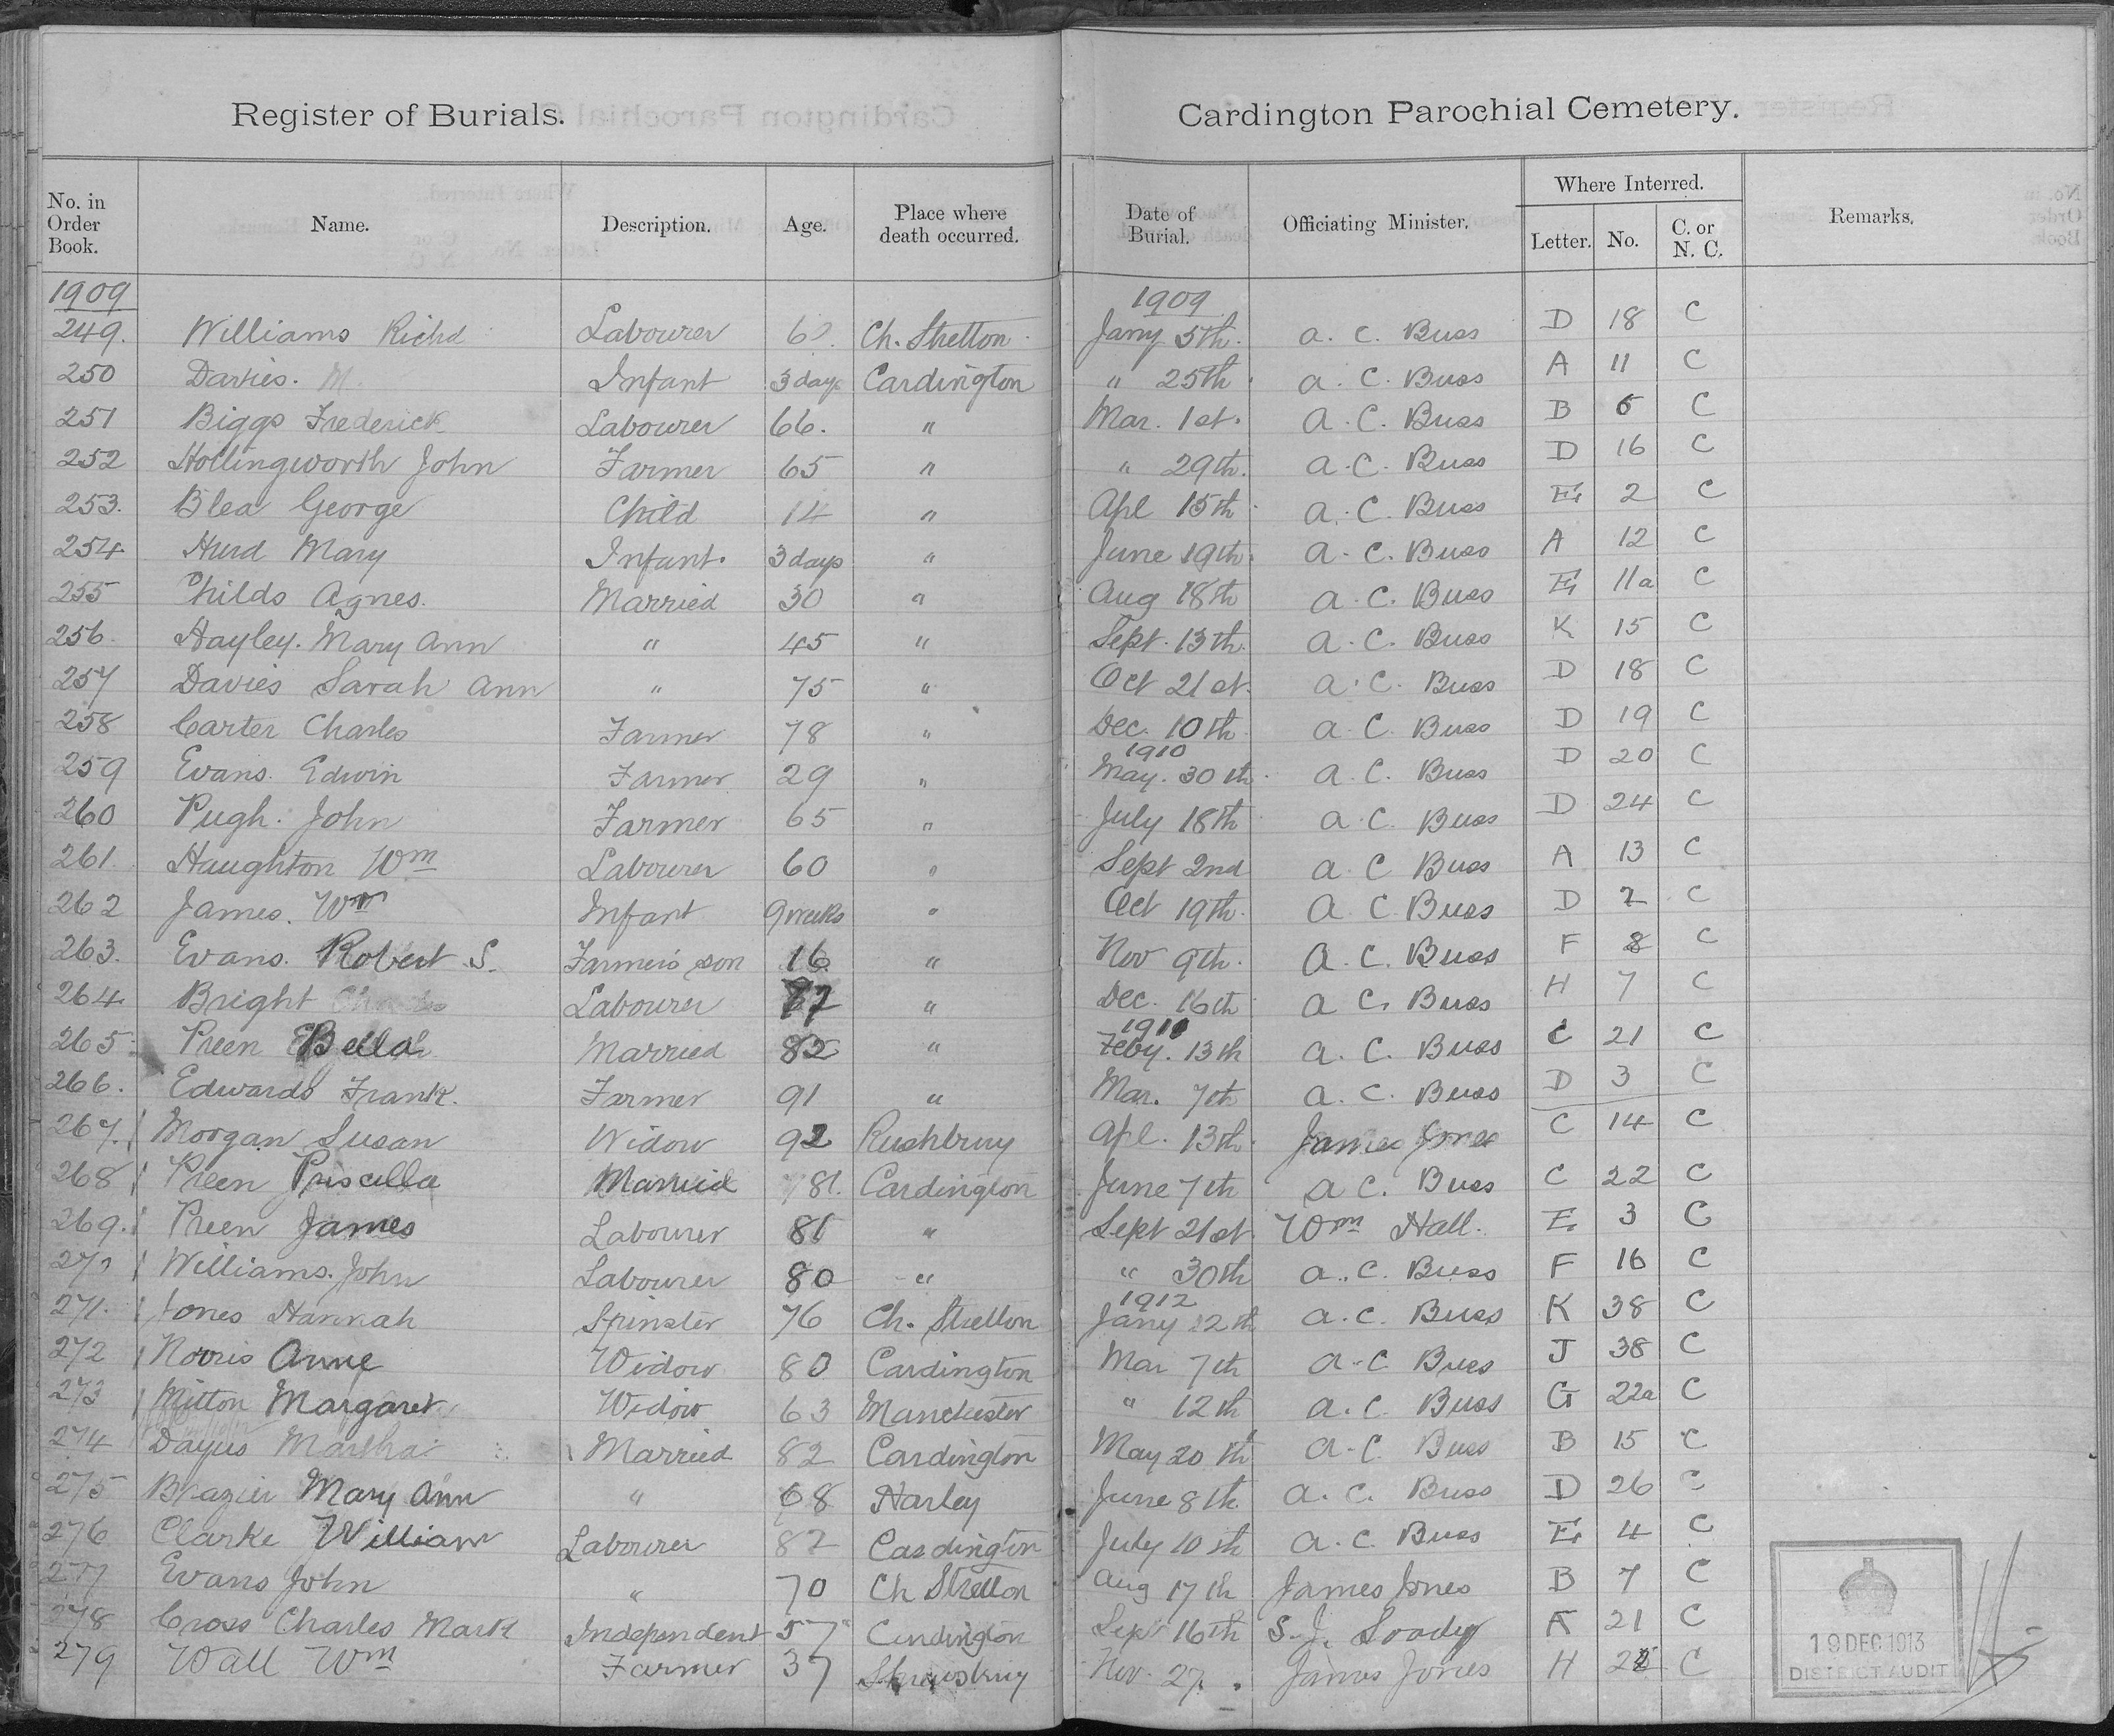 Register of Burials.
Cardington Parochial Cemetery.
No. in Order Book. Name. Description. Age. Place where death occurred. Date of Burial. Officiating Minister. Where Interred. Letter. No. C. or N. C. Remarks.
1909 1909
249. Williams Richd Labourer Ch. Stretton Jany 5th. A. C. Buss D 18 C
250 Darkies. M. Infant 3 days Cardington " 25th A. C. Buss A 11 C
251 Biggs Frederick Labourer 66. " Mar. 1st. A. C. Buss B 6 C
252 Hollingworth John Farmer 65 " " 29th. A. C. Buss D 16 C
253. Blea George Child 14 " Apl 15th A. C. Buss E 2 C
254 Hurd Mary Infant. 3 days " June 19th. A. C. Buss A 12 C
255 Childs Agnes. Married 30 " Aug 18th A. C. Buss E 11a C
256. Hayley. Mary Ann " 45 " Sept. 13th. A. C. Buss K 15 C
257 Davies Sarah Ann " 75 " Oct 21st. A. C. Buss D 18 C
258 Carter Charles Farmer 78 " Dec. 10th A. C. Buss D 19 C
1910
259 Evans. Edwin Farmer 29 " May. 30th. A. C. Buss D 20 C
260 Pugh. John Farmer 65 " July 18th A. C. Buss D 24 C
261. Haughton Wm Labourer 60 " Sept 2nd A. C Buss A 13 C
262 James. Wm Infant 9 weeks " Oct 19th. A. C. Buss D 2 C
263. Evans. Robert S. Farmer's son 16 " Nov 9th. A. C. Buss F 8 C
264 Bright Labourer " Dec. 16th A. C. Buss H 7 C
1911
265 Preen Bella Married 82 " Feby. 13th A. C. Buss C 21 C
266. Edwards Frank. Farmer 91 " Mar. 7th A. C. Buss D 3 C
267. Morgan Susan Widow 92 Rushbury Apl. 13th. James Jones C 14 C
268 Preen Priscilla Married 81. Cardington June 7th A C. Buss C 22 C
269. Preen James Labourer 81 " Sept 21st Wm Hall. E 3 C
270 Williams. John Labourer 80 " " 30th A. C. Buss F 16 C
1912
271. Jones Hannah Spinster 76 Ch. Stretton Jany 12th A. C. Buss K 38 C
272 Norris Anne Widow 80 Cardington Mar 7th A. C Buss J 38 C
273 Mitton Margaret Widow 63 Manchester " 12th A. C. Buss G 22a C
274 Dayus Martha Married 82 Cardington May 20th A. C Buss B 15 C
275 Brazier Mary Ann " 68 Harley June 8th. A. C. Buss D 26 C
276 Clarke William Labourer 82 Cardington July 10th A. C. Buss E 4 C
277 Evans John " 70 Ch Stretton Aug 17th James Jones B 7 C
278 Cross Charles Mark Independent 57 Cardington Sept 16th S. J. A 21 C
279 Wall Wm Farmer 37 Shrewsbury Nov. 27. James Jones H C
19 DEC 1913
DISTRICT AUDIT